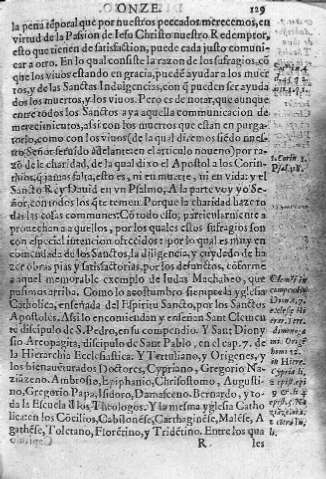 ONZE. 129
la pena tẽporal que por nuestros peccados merecemos, en
virtud de la Passion de Iesu Christo nuestro Redemptor,
esto que tienen de satisfaction, puede cada justo comuni-
car a otro. En lo qual consiste la razon de los sufragios, cõ
que los viuos estando en gracia, puedẽ ayudar a los muer-
tos, y de las Sanctas Indulgencias, con q̃ pueden ser ayuda
dos los muertos, y los viuos. Pero es de notar, que aunque
entre todos los Sanctos aya aquella communicacion de
merecimientos, assi con los muertos que estan en purga-
torio, como con los viuos (de la qual diremos siẽdo nues-
tro Señor seruido adelante en el articulo noueno) por ra-
zõ de la charidad, de la qual dixo el Apostol a los Corin-
thios, q̃ jamas falta, esto es, ni en muerte, ni en vida: y el
Sancto Rey Dauid en vn Psalmo, A la parte voy yo Se-
ñor, con todos los q̃ te temen. Porque la charidad haze to
das las cosas communes: Cõ todo esso, particularmente a
prouechan a aquellos, por los quales estos sufragios son
con especial intencion ofrecidos: por lo qual es muy en
comendada de los Sanctos, la diligencia, y cuydado de ha
zer obras pias y satisfactorias, por los defunctos, cõforme
a aquel memorable exemplo de Iudas Machabeo, que
pusimos arriba. Como lo acostumbro siempre la yglesia
Catholica, enseñada del Espiritu Sancto, por los Sanctos
Apostoles. Assi lo encomiendan y enseñan Sant Clemen
te discipulo de S. Pedro, en su compendio. Y Sant Diony
sio Areopagita, discipulo de Sant Pablo, en el cap. 7. de
la Hierarchia Ecclesiastica. Y Tertuliano, y Origenes, y
los bienauenturados Doctores, Cypriano, Gregorio Na-
ziãzeno. Ambrosio, Epiphanio, Chrisostomo, Augusti-
no, Gregorio Papa, Isidoro, Damasceno, Bernardo, y to-
da la Escuela d̃ los Theologos. Y la mesma yglesia Catho
lica en los Cõcilios, Cabilonẽse, Carthaginẽse, Malẽse, A
gathẽse, Toletano, Florẽtino, y Tridẽtino. Entre los qua
R. les
1. Corin. 3.
Psal. 118.
Clemẽs in
compendio